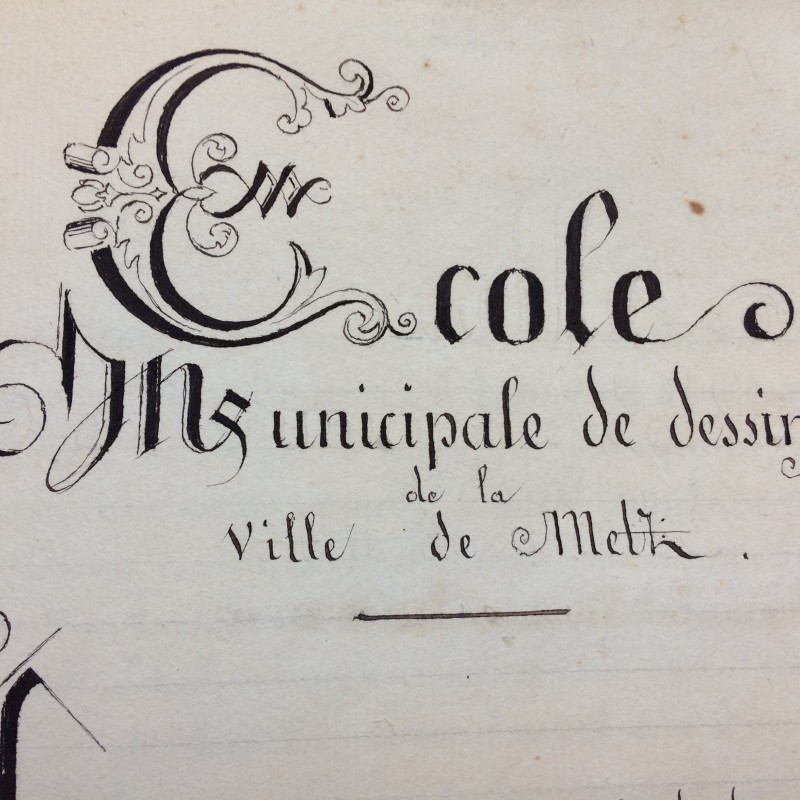 Ecole
Municipale de dessin
de la
Ville de Metz.